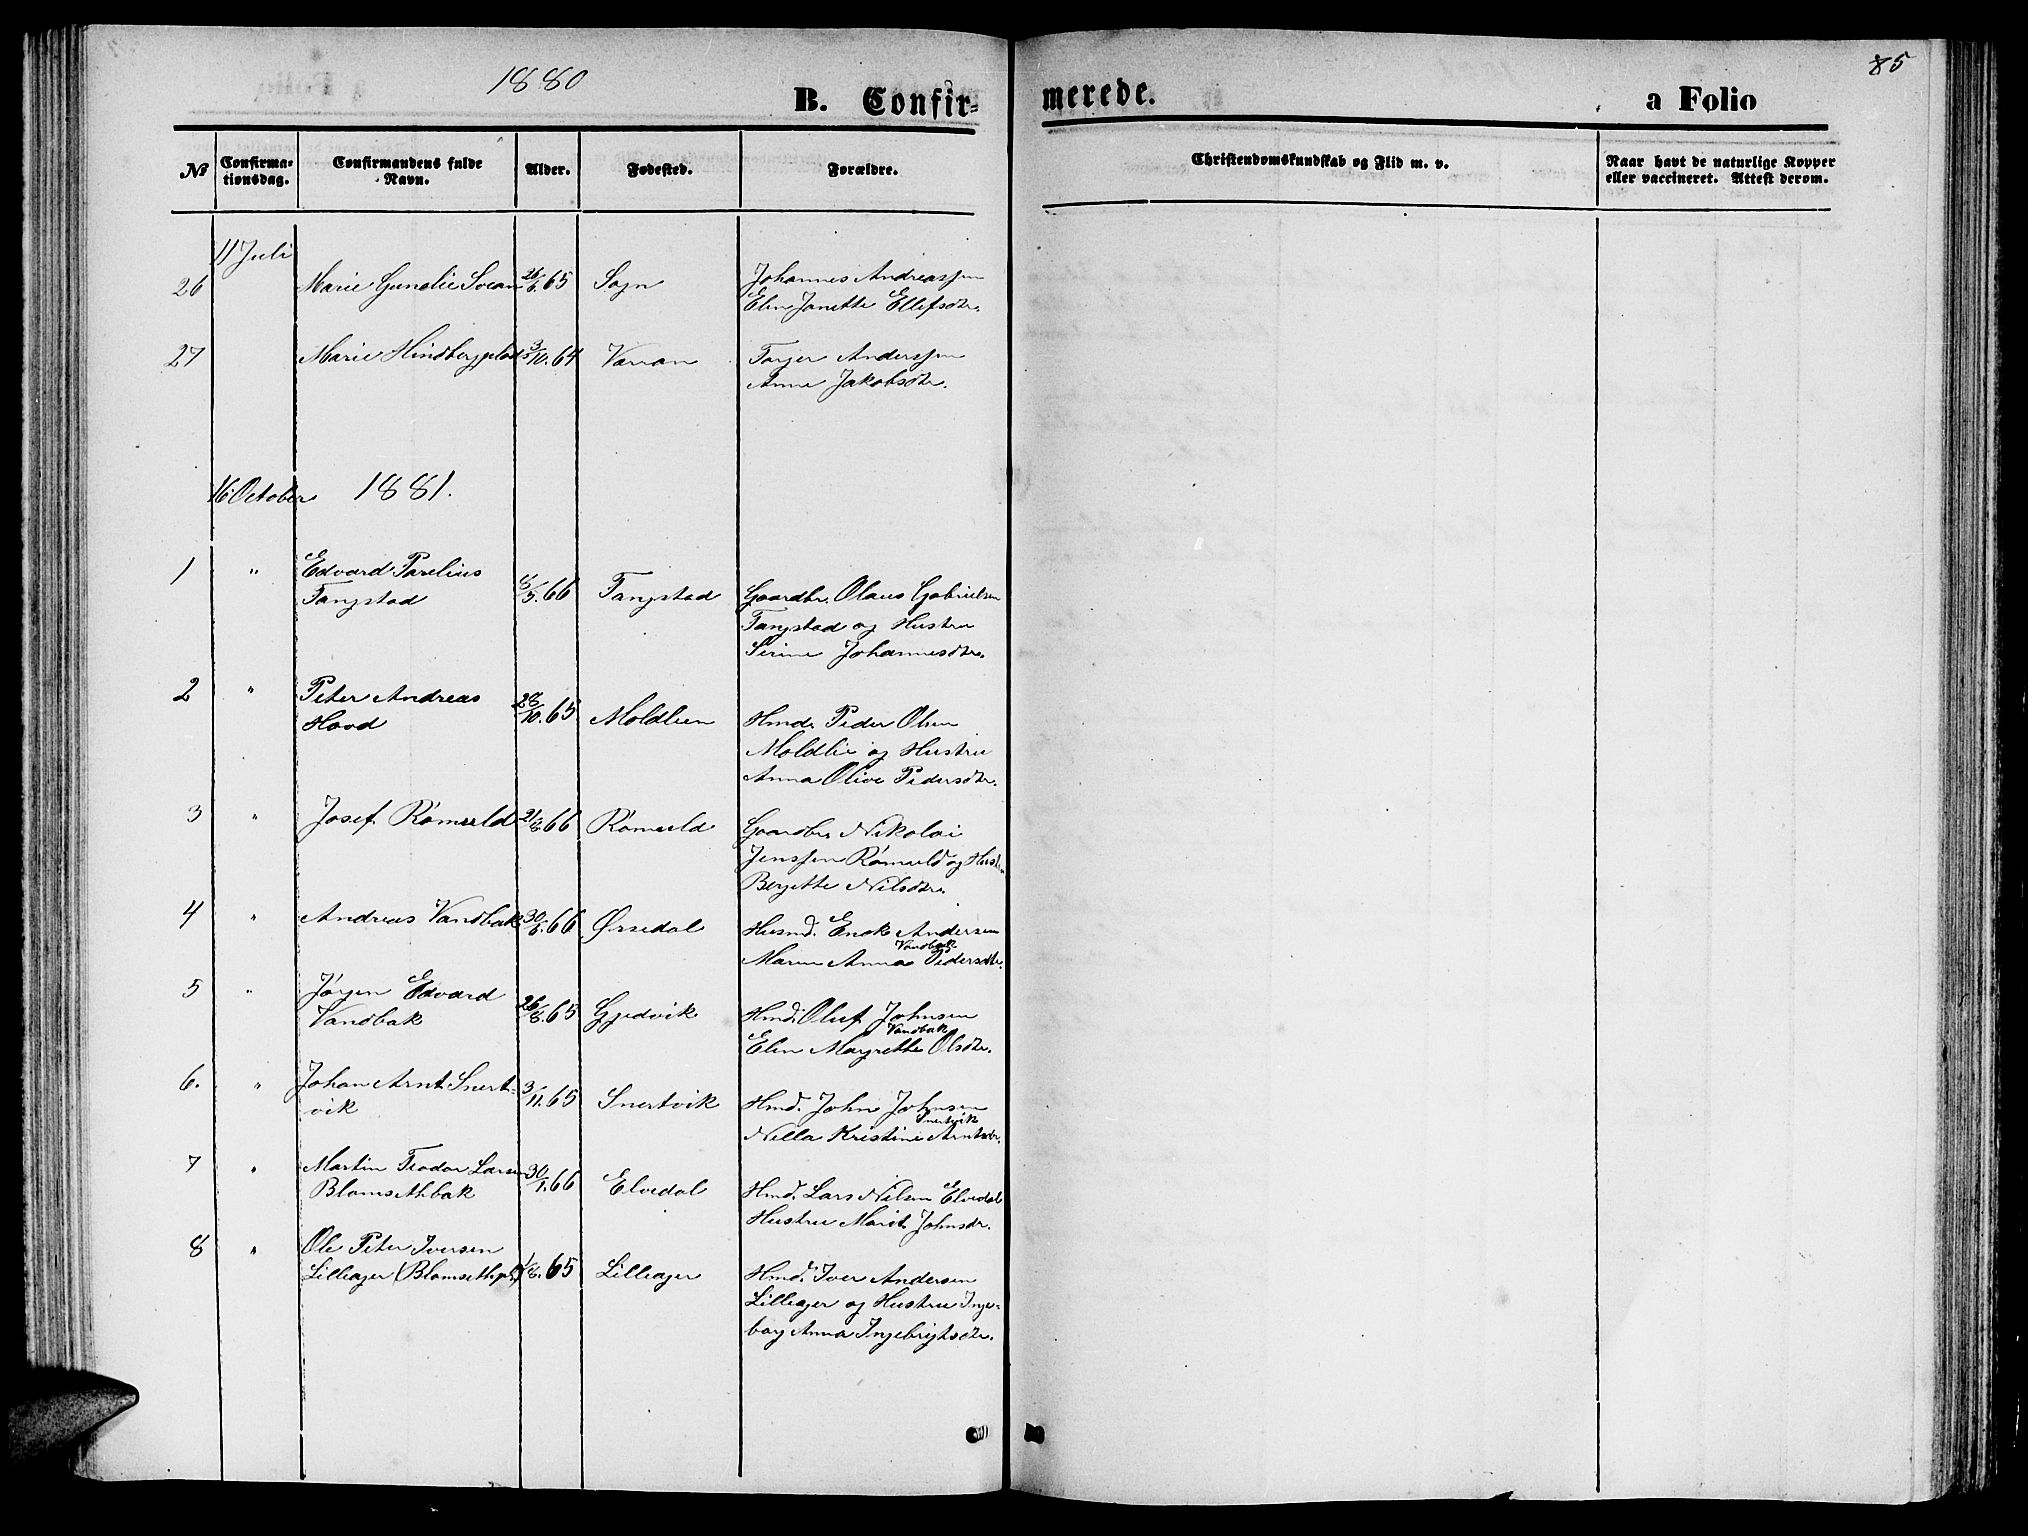 1880
85
B. Confir=
merede.
a Folio
No
Confirma-
tionsdag.
Confirmandens fulde
Navn.
Alder.
Fødested.
Forældre.
Christendomskundskab og Flid m. v.
Naar havt de naturlige Kopper
eller vaccineret. Attest derom.
11 Juli
26 Marie Gunelie Svean 26/6.65 Sogn Johannes Andreassen
Elen Janette Ellefsdtr.
27 Marie Hindbergplads 3/10.64 Torger Anderssen
Anne Jakobsdtr.
16 October 1881.
1 " Edvard Parelius
Tangstad /5.66 Tangstad Gaardbr. Olaus Gabrielsen
Tangstad og Hustru
Serine Johannesdtr.
2 " Peter Andreas
Hovd 28/10.65 Moldlien Hmd. Peder Olsen
Moldlie og Hustru
Anna Olive Pedersdtr.
3 " Josef Römuld 21/8.66 Römuld Gaardbr. Nikolai
Jenssen Römuld og Hustru
Bergette Nilsdtr.
4 " Andreas Vandbak 30/6.66 Ørsedal Husmd. Enok Andersen
Vandbak
Maren Anna Pedersdtr.
5 " Jörgen Edvard
Vandbak 26/8.65 Gjedvik Hmd. Oluf Johnsen
Vandbak
Elen Margrethe Olsdtr.
6. " Johan Arnt Snert-
vik 3/11.65 Snertvik Hmd. John Johnsen
Snertvik
Nella Kristine Arntsdtr.
7 " Martin Teodor Larsen
Blomsethbak 30/1.66 Elvedal Hmd. Lars Nilsen Elvedal
Hustru Marit Johnsdtr.
8 " Ole Peter Iversen
Lilleager (Blomsethpl.) 1/8.65 Lilleager Hmd. Iver Andersen
Lilleager og Hustru Inge-
borg Anna Ingebrigtsdtr.